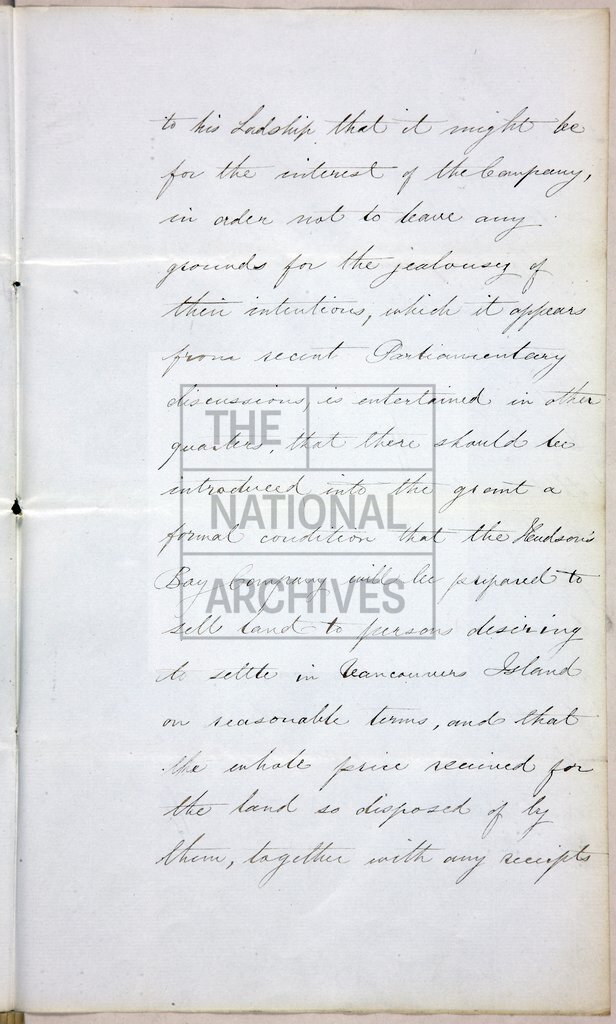 to his Lordship that it might be
for the interest of the Company,
in order not to leave any
grounds for the jealousy of
their intentions, which it appears
from recent Parliamentary
discussions, is entertained in other
quarters, that there should be
introduced into the grant a
formal condition that the Hudson's
Bay Company will be prepared to
sell land to persons desiring
to settle in Vancouvers Island
on reasonable terms, and that
the whole price received for
the land so disposed of by
them, together with any receipts
THE
NATIONAL
ARCHIVES